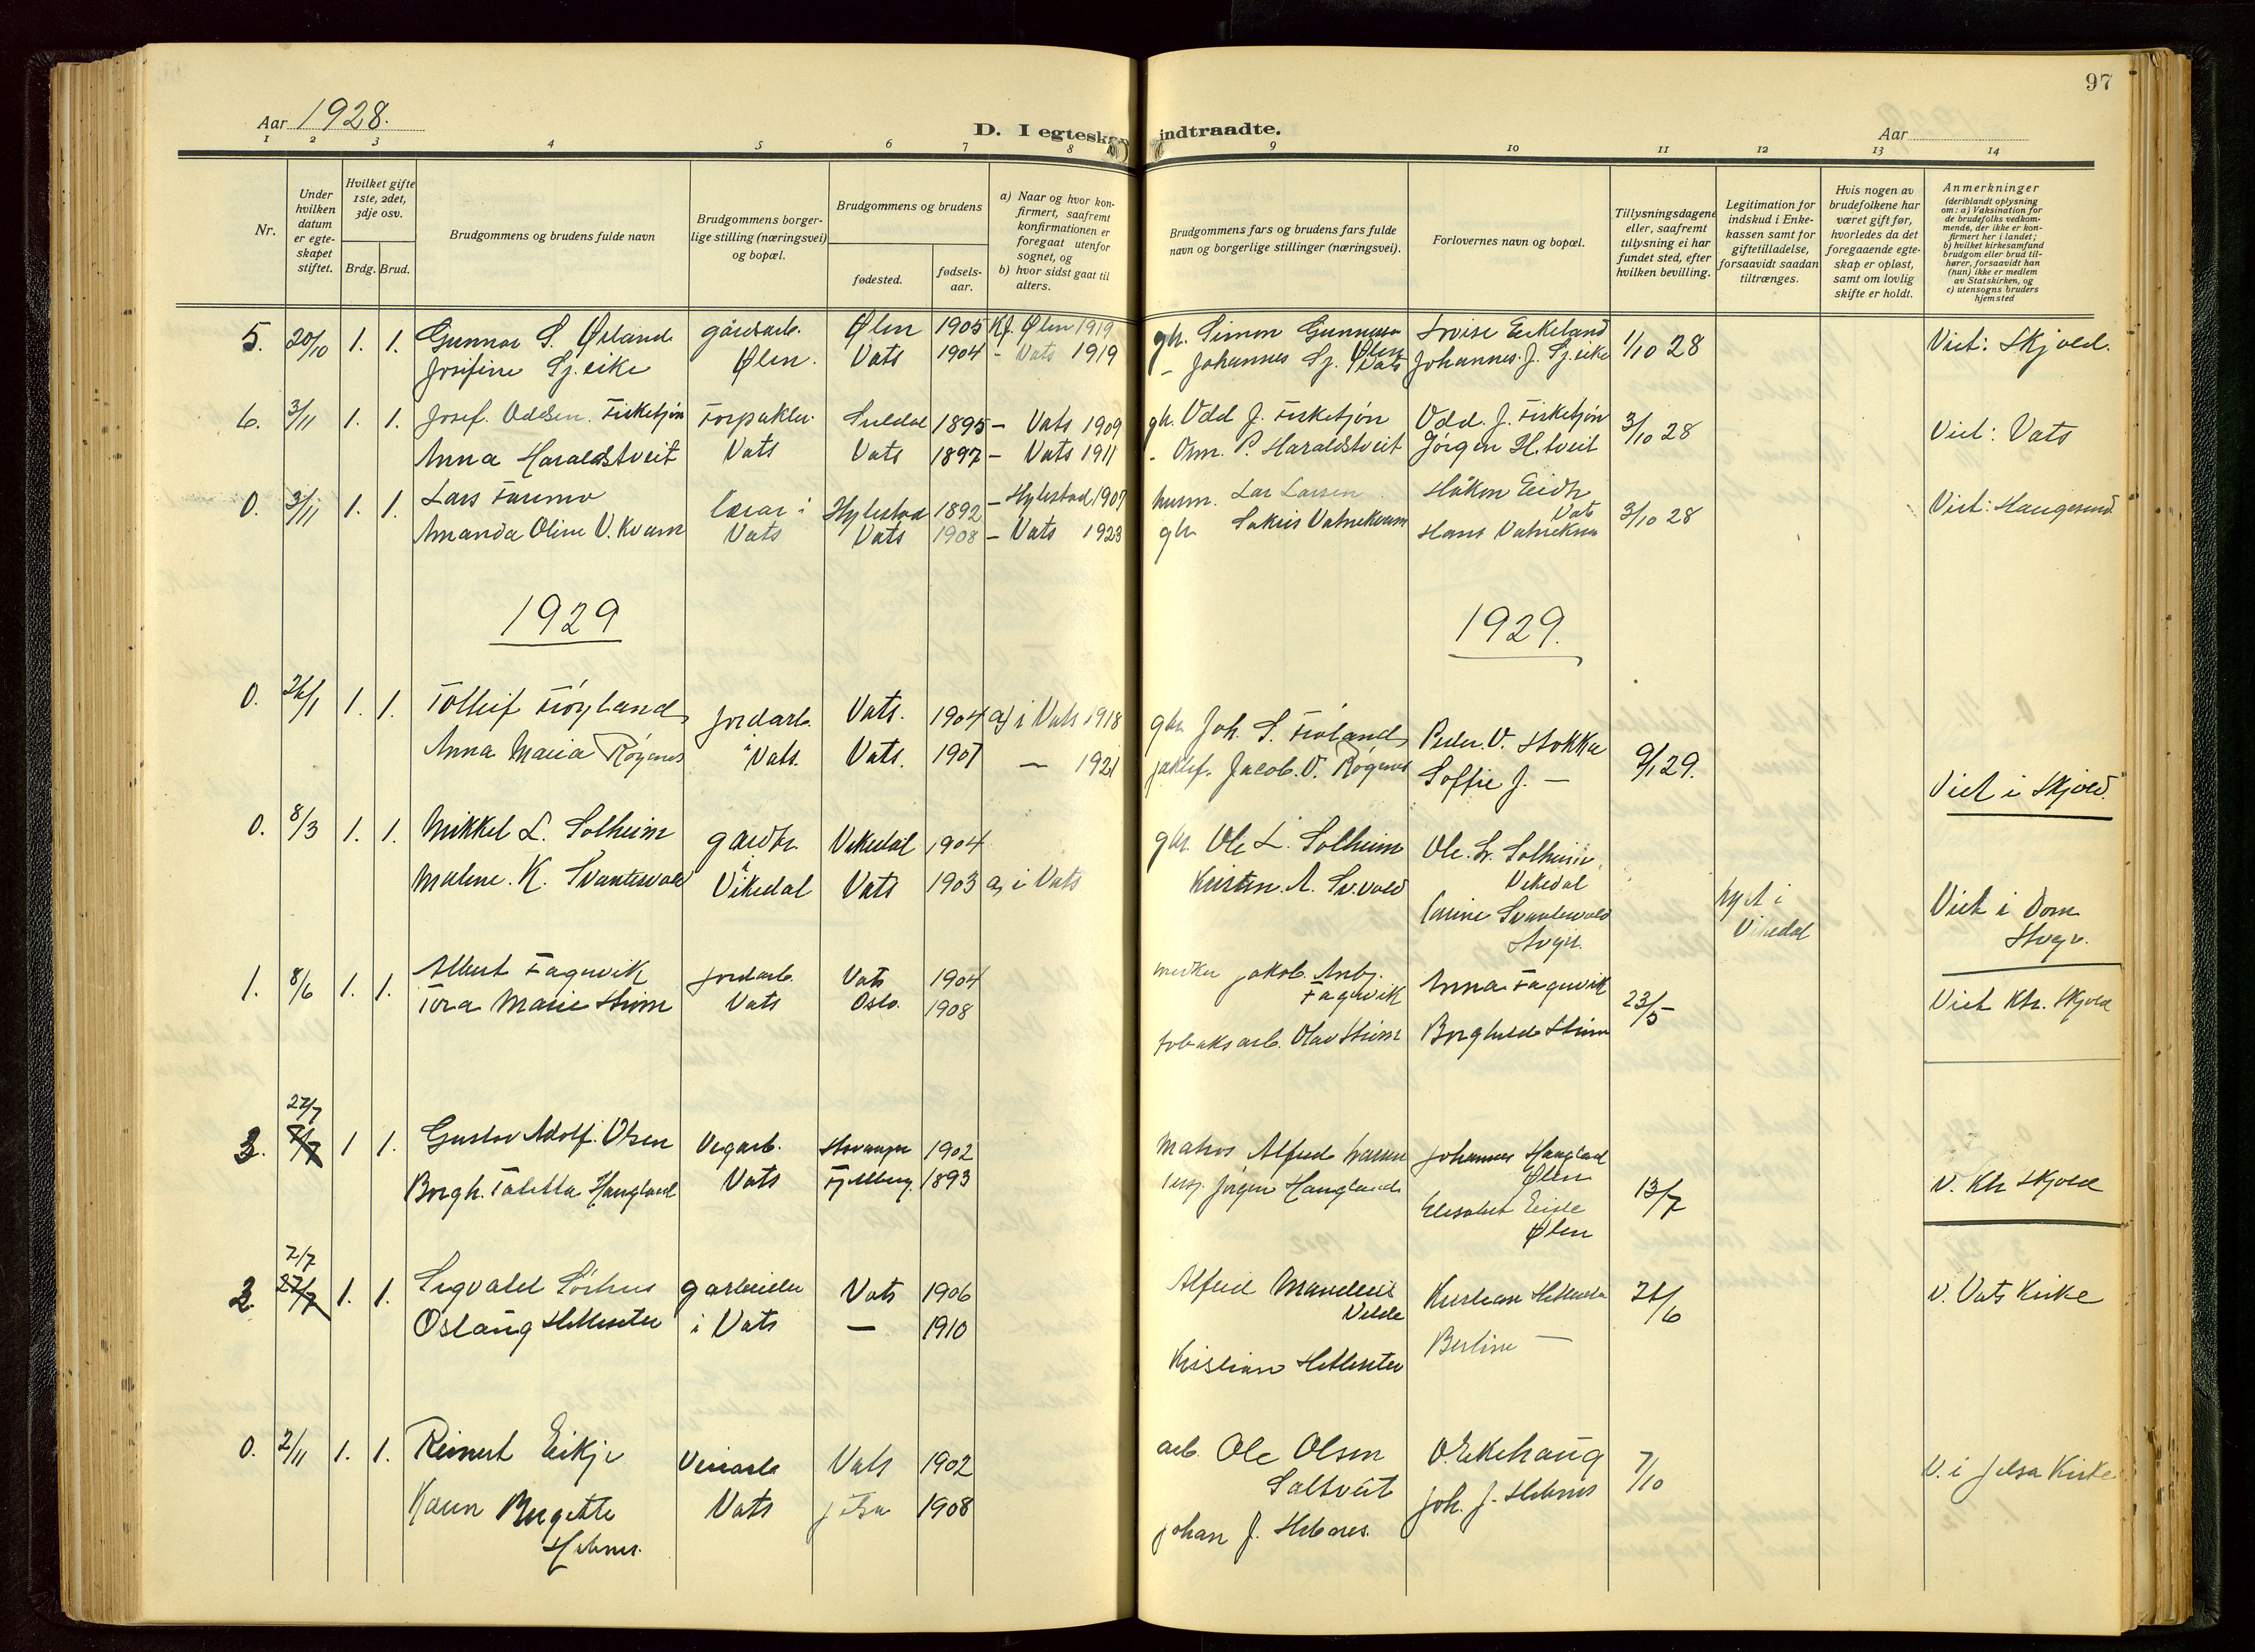 97
Aar 1928.
D. I egteska
indtraadte.
Aar
1 2 3 4 5 6 7 8 9 10 11 12 13 14
Nr.
Under hvilken datum er egteskapet stiftet.
Hvilket gifte 1ste, 2det, 3dje osv.
Brdg. Brud.
Brudgommens og brudens fulde navn
Brudgommens borgerlige stilling (næringsvei) og bopæl.
Brudgommens og brudens
fødested.
fødselsaar.
a) Naar og hvor konfirmert, saafremt konfirmationen er foregaat utenfor sognet, og
b) hvor sidst gaat til alters.
Brudgommens fars og brudens fars fulde navn og borgerlige stillinger (næringsvei).
Forlovernes navn og bopæl.
Tillysningsdagene eller, saafremt tillysning ei har fundet sted, efter hvilken bevilling.
Legitimation for indskud i Enkekassen samt for giftetilladelse, forsaavidt saadan tiltrænges.
Hvis nogen av brudefolkene har været gift før, hvorledes da det foregaaende egteskap er opløst, samt om lovlig skifte er holdt.
Anmerkninger (deriblandt oplysning om: a) Vaksination for de brudefolks vedkommende, der ikke er konfirmert her i landet; b) hvilket kirkesamfund brudgom eller brud tilhører, forsaavidt han (hun) ikke er medlem av Statskirken, og c) utensogns bruders hjemsted
5. 20/10 1. 1. Gunnar S. Øsland gårdsarb. Ølen 1905 Kf. Ølen 1919 gh. Simon Gunnarsen Ølen Lovise Eikeland 1/10 28 Viet: Skjold.
Josefine Sj.eike Ølen. Vats 1904 - Vats 1919 - Johannes Sj. Vats Johannes. J. Sj.eike
6. 3/11 1. 1. Josef. Oddsen. Fisketjøn Forpakter Suldal 1895 - Vats 1909 gh. Odd J. Fisketjøn Odd. J. Fisketjøn 3/10 28 Viet: Vats
Anna Haraldstveit Vats Vats 1897 - Vats 1911 - Osm. P. Haraldstveit Jørgen H.tveit
0. 3/11 1. 1. Lars Faremo lærar i Hylestad 1892 - Hylestad 1907 husm. Lar Larsen Håkon Eide Vats 3/10 28 Viet: Haugesund
Amanda Oline V. Kvam Vats Vats 1908 - Vats 1923 gh Sakris Vatnekvam Hans Vatnekvam
1929
1929.
0. 26/1 1. 1. Tolleif Frøyland jordarb. Vats. 1904 a) i Vats 1918 gbr Joh. S. Frøland Peder. V. Stokka 9/1 29.
Anna Maria Røgenes i Vats. Vats. 1907 — 1921 Jacob. V. Røgenes Soffie J. — Viet i Skjold.
0. 8/3 1. 1. Mikkel L. Solheim gardbr. Vikedal 1904 gbr. Ole L. Solheim Ole. L. Solheim, Vikedal
Malene. K. Svantesvold i Vikedal Vats 1903 a, i Vats Kristen. A. Sv.vold Karine Svantesvold lyst i Vikedal Viet i Dom Stvgr.
1. 8/6 1. 1. Albert Fagervik jordarb. Vats 1904 jakob. Anbj. Fagervik Anna Fagervik 23/5 Viet Kh. Skjold
Tora Marie Strøm Vats Oslo. 1908 tobaksarb. Olav Strøm Borghild Strøm
3. 27/7 1 1. Gustav Adolf. Olsen Vegarb. Stavanger 1902 Matros Alfred Larsen Johannes Haugland Ølen 13/7 V. Kh Skjold
Borgh. Taletta Haugland Vats Fjelberg. 1893 Jørgen Haugland Elisabet Eide Ølen
2. 7/7 27/7 1. 1. Sigvald Sørhus garbeider Vats 1906 Alfred Kristian 26/6 V. Vats Kirke
Oslaug i Vats — 1910 Kristian Berline —
0. 2/11 1. 1. Reinert Eikje Veiarb Vats 1902 arb. Ole Olsen Saltveit O. Eikehaug 7/10 V. i Jelsa Kirke
Karen Birgitte Hebnes. Vats Jelsa 1908 Johan J. Hebnes. Joh. J. Hebnes